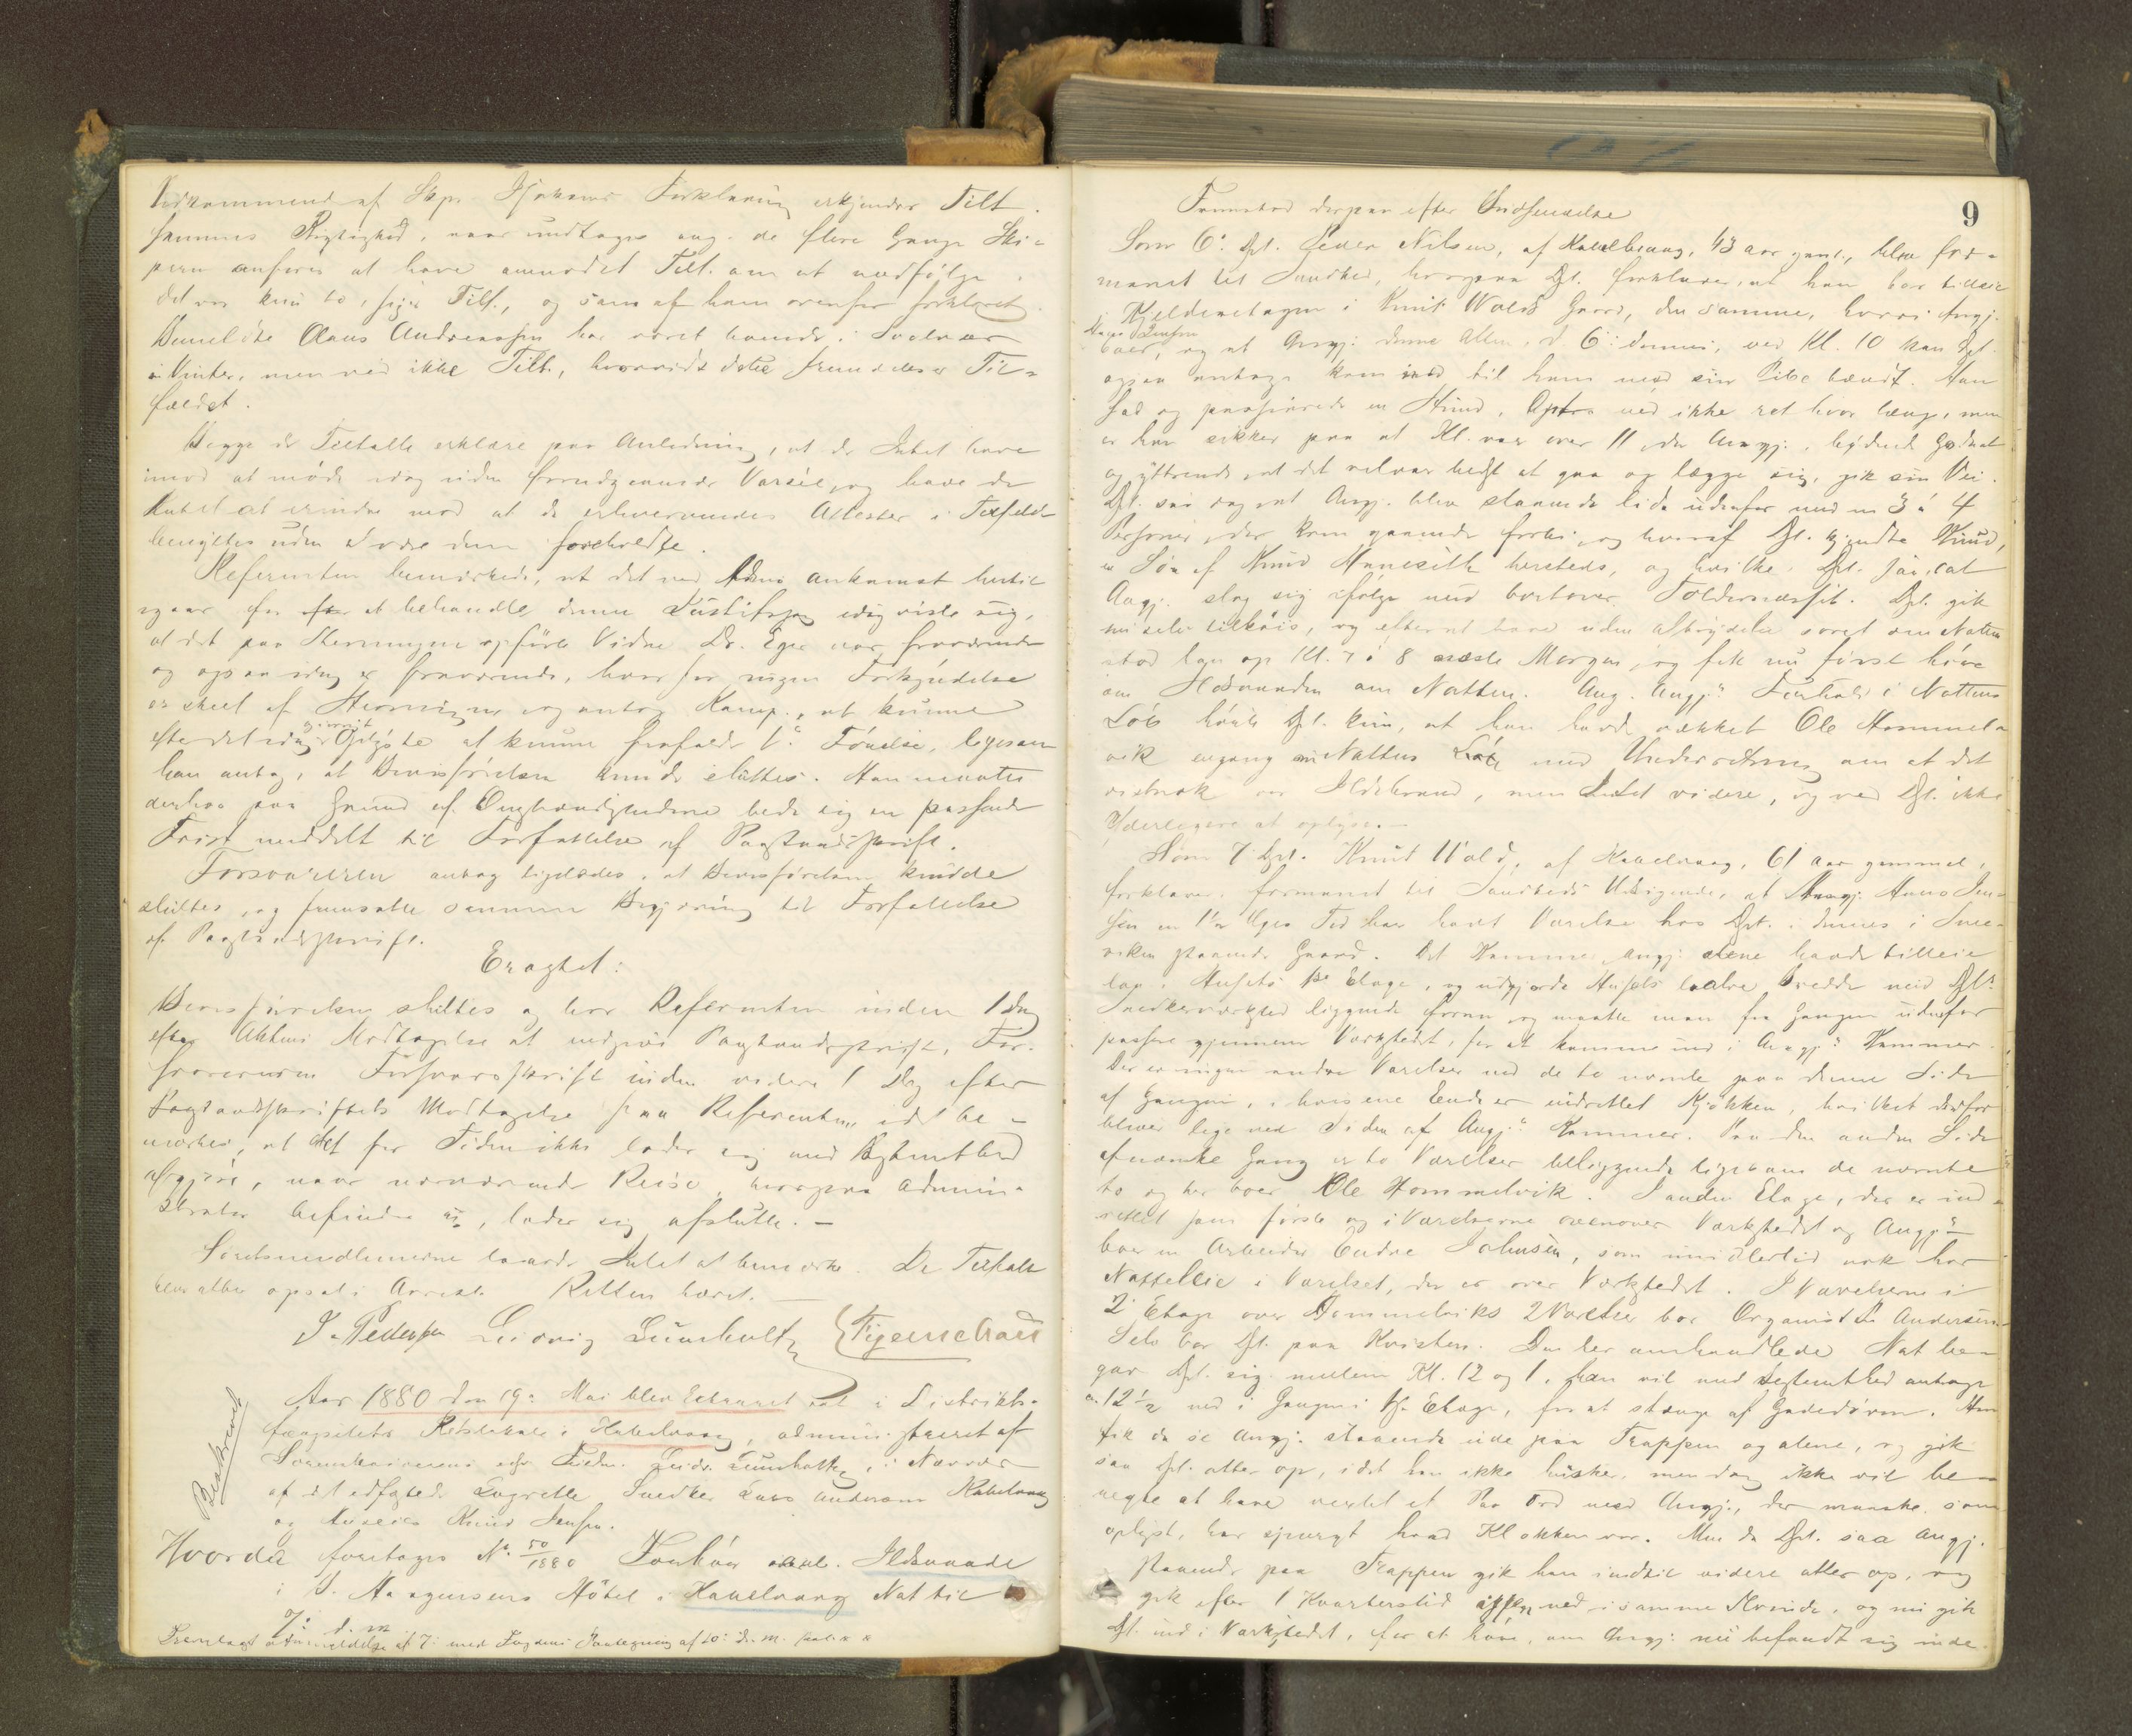 Vedkommende af Skpr. Forklaring erkjender Tilt.
sammes Rigtighed, naar undtages ang. de flere Gange Ski-
peren anføres at have anmodet Tilt. om at medfølge.
det var kun to, siger Tilt., og som af ham ovenfor forklaret.
Anmeldte Claus Andreassen har været boende i Svolvær
i Vinter, men ved ikke Tilt., hvorvidt dette fremdeles er Til-
fældet.
Begge de Tiltalte erklære paa Anledning, at de Intet have
imod at møde idag uden forudgaaende Varsel, og have de
Intet at erindre mod at de erhvervendes Attester i
benyttes uden at være dem foreholdte.
Referenten bemærkede, at det ved Adms ankomst hertil
igaar for at behandle denne Justitssag idag viste sig,
at det paa Stevningen opførte Vidne Dr. Egee var fraværende
og ogsaa idag er fraværende, hvorfor ingen Forkyndelse
er skeet af Stevningen og antog Komp. at kunne
efter det idag Oplyste at kunne frafalde Vs Førelse, ligesom
han antog, at Bevisførelsen kunde sluttes. Han maatte
derhos paa Grund af Omstændighederne bede sig en passende
Frist meddelt til Forfattelse af Paastandsskrift.
Forsvareren antog ligeledes, at Bevisførelsen kunde
sluttes, og fremsatte samme Begjæring til Forfattelse
af Paastandsskrift.
Eragtet:
Bevisførelsen sluttes og bør Referenten inden 1 Dag
efter Aktens Modtagelse at indgive Paastandsskrift, For-
svareren Forsvarsskrift inden videre 1 Dag efter
Paastandsskriftets Modtagelse fra Referenten, idet be-
mærkes, at det for Tiden ikke lader sig med Bestemthed
afgjøre, naar nærværende Reise, hvorpaa Admini-
strator befinder sig, lader sig afslutte. —
Soretsmedlemmerne havde Intet at bemærke. De Tiltalte
blev atter opsat i Arrest. Retten hævet. —
J. Pedersen Ludvig Lumholtz Figenschau
Beskrevet
Aar 1880 den 19de Mai blev Extraret sat i Distrikts-
fængslets Retslokale i Kabelvaag, administreret af
Sorenskriveren efter Ludv. Lumholtz, i Nærvær
af det edfæstede Lagrette Snedker Lars Andersen Kabelvaag
og Knud Jensen.
Hvorda foretoges No 50/1880 Forhør ang. Ildsvaade
i S. Magnusens Hôtel i Kabelvaag Nat til
7: d. m.
Fremlagt Anmeldelse af 7: med Fogdens Paategning af 10: ds. M.
9
Fremstod derpaa efter Indkaldelse
Som 6: Dpt. Peder Nilsen, af Kabelvaag, 43 aar gaml., blev for-
manet til Sandhed, hvorpaa Dpt. forklarer, at han bor tilleie
i Kjelderetagen i Knut Wolds Gaard, den samme, hvori Angj.
Hans Jensen
boer, og at Angj. denne Aften, d. 6: dennes, ved Kl. 10 kan Dpt.
ogsaa antage kom ind til ham med sin Pibe tændt. Han
sad og passiarede en Stund, Dpt. ved ikke ret hvor længe, men
er han sikker paa at Kl. var over 11, da Angj., bydende Godnat
og yttrende, at det vel var bedst at gaa og lægge sig, gik sin Vei.
Dpt. saa dog at Angj. blev staaende lidt udenfor med en 3 à 4
Personer, der kom gaaende forbi, og hvoraf Dpt. kjendte Knud,
en Søn af Knud hersteds, og hvilke Dpt. saa, at
Angj. slog sig ifølge med bortover. Dpt. gik
nu selv tilkøis, og efter at have uden Afbrydelse sovet om Natten
stod han op Kl. 7 à 8 næste Morgen, og fik nu først høre
om Ildsvaaden om Natten. Ang. Angj:s Forhold i Nattens
Løb hørte Dpt. kun, at han havde vækket Ole Hommel-
vik engang i Nattens Løb med Underretning om at det
vistnok var Ildebrand, men Intet videre, og ved Dpt. ikke
Yderligere at oplyse. —
Som 7: Dpt. Knut Wold, af Kabelvaag, 61 aar gammel,
forklarer, formanet til Sandheds Udsigende, at Angj. Hans Jen-
sen en 1 1/2 Uges Tid har havt Værelse hos Dpt. i dennes i Snee-
viken staaende Gaard. Det Kammer Angj. alene havde tilleie
laa i Husets 1ste Etage, og udgjorde Husets halve Bredde med Dpt:s
Snedkerværksted liggende foran, og maatte man fra Gangen udenfor
passere gjennem Værkstedet, for at komme ind i Angj:s Kammer.
Der er ingen andre Værelser end de to nævnte paa denne Side
af Gangen, i hvis ene Ende er indrettet Kjøkken, hvilket derfor
bliver lige ved Siden af Angj:s Kammer. Paa den anden Side
af nævnte Gang er to Værelser beliggende ligesom de nævnte
to og her boer Ole Hommelvik. I anden Etage, der er ind-
rettet som første og i Værelserne ovenover Værkstedet og Angj:s
boer en Arbeider Endre Johnsen, som imidlertid nok har
Natteleie i Værelset, der er over Værkstedet. I Værelserne i
2: Etage over Hommelviks 2 Værelser bor Organist Andersen.
Selv bor Dpt. paa Kvisten. Den her omhandlede Nat be-
gav Dpt. sig mellem Kl. 12 og 1, han vil med Bestemthed antage
ca. 12 1/2 ned i Gangen i 1ste Etage, for at stænge af Gadedøren. Han
fik da se Angj. staaende ude paa Trappen og alene, og gik
saa Dpt. atter op, idet han ikke husker, men dog ikke vil be-
nægte at have vexlet et Par Ord med Angj., der maaske, som
oplyst, har spurgt hvad Klokken var. Men da Dpt. saa Angj.
staaende paa Trappen gik han indtil videre atter op, og
gik efter 1 Kvarterstid atter ned i samme Ærinde, og nu gik
Dpt. ind i Værkstedet, for at høre, om Angj. nu befandt sig inde.